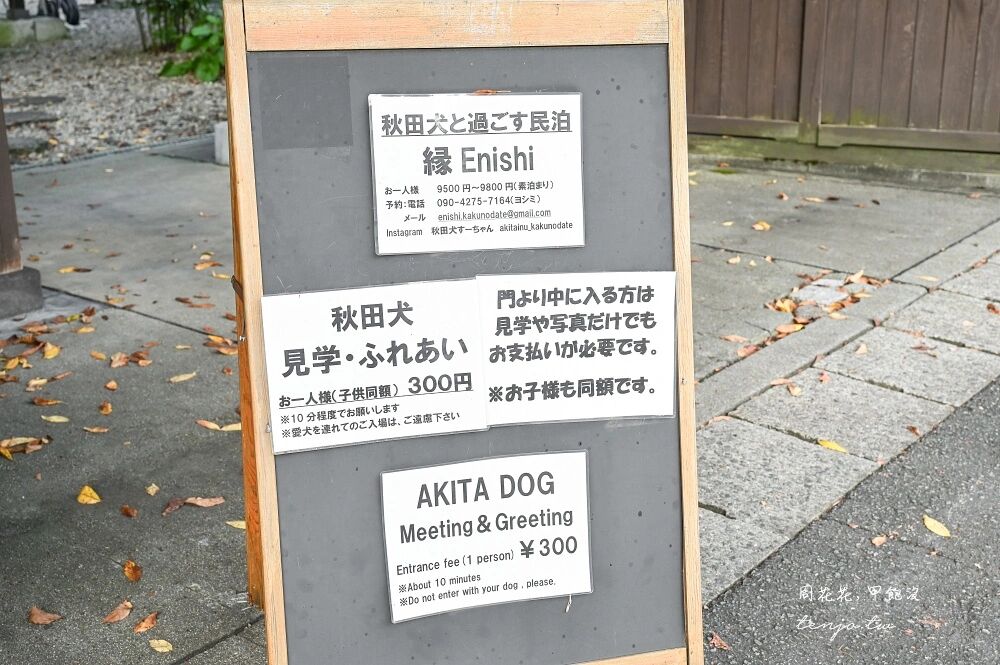 秋田犬と過ごす民泊
縁 Enishi
お一人様 9500円～9800円(素泊まり)
予約:電話 090-4275-7164(ヨシミ)
メール enishi.kakunodate@gmail.com
Instagram 秋田犬すーちゃん akitainu_kakunodate
秋田犬
見学・ふれあい
お一人様(子供同額) 300円
※10分程度でお願いします
※愛犬を連れてのご入場は、ご遠慮下さい
門より中に入る方は
見学や写真だけでも
お支払いが必要です。
※お子様も同額です。
AKITA DOG
Meeting & Greeting
Entrance fee (1 person) ￥300
※About 10 minutes
※Do not enter with your dog , please.
周花花 甲飽沒
tenjo.tw